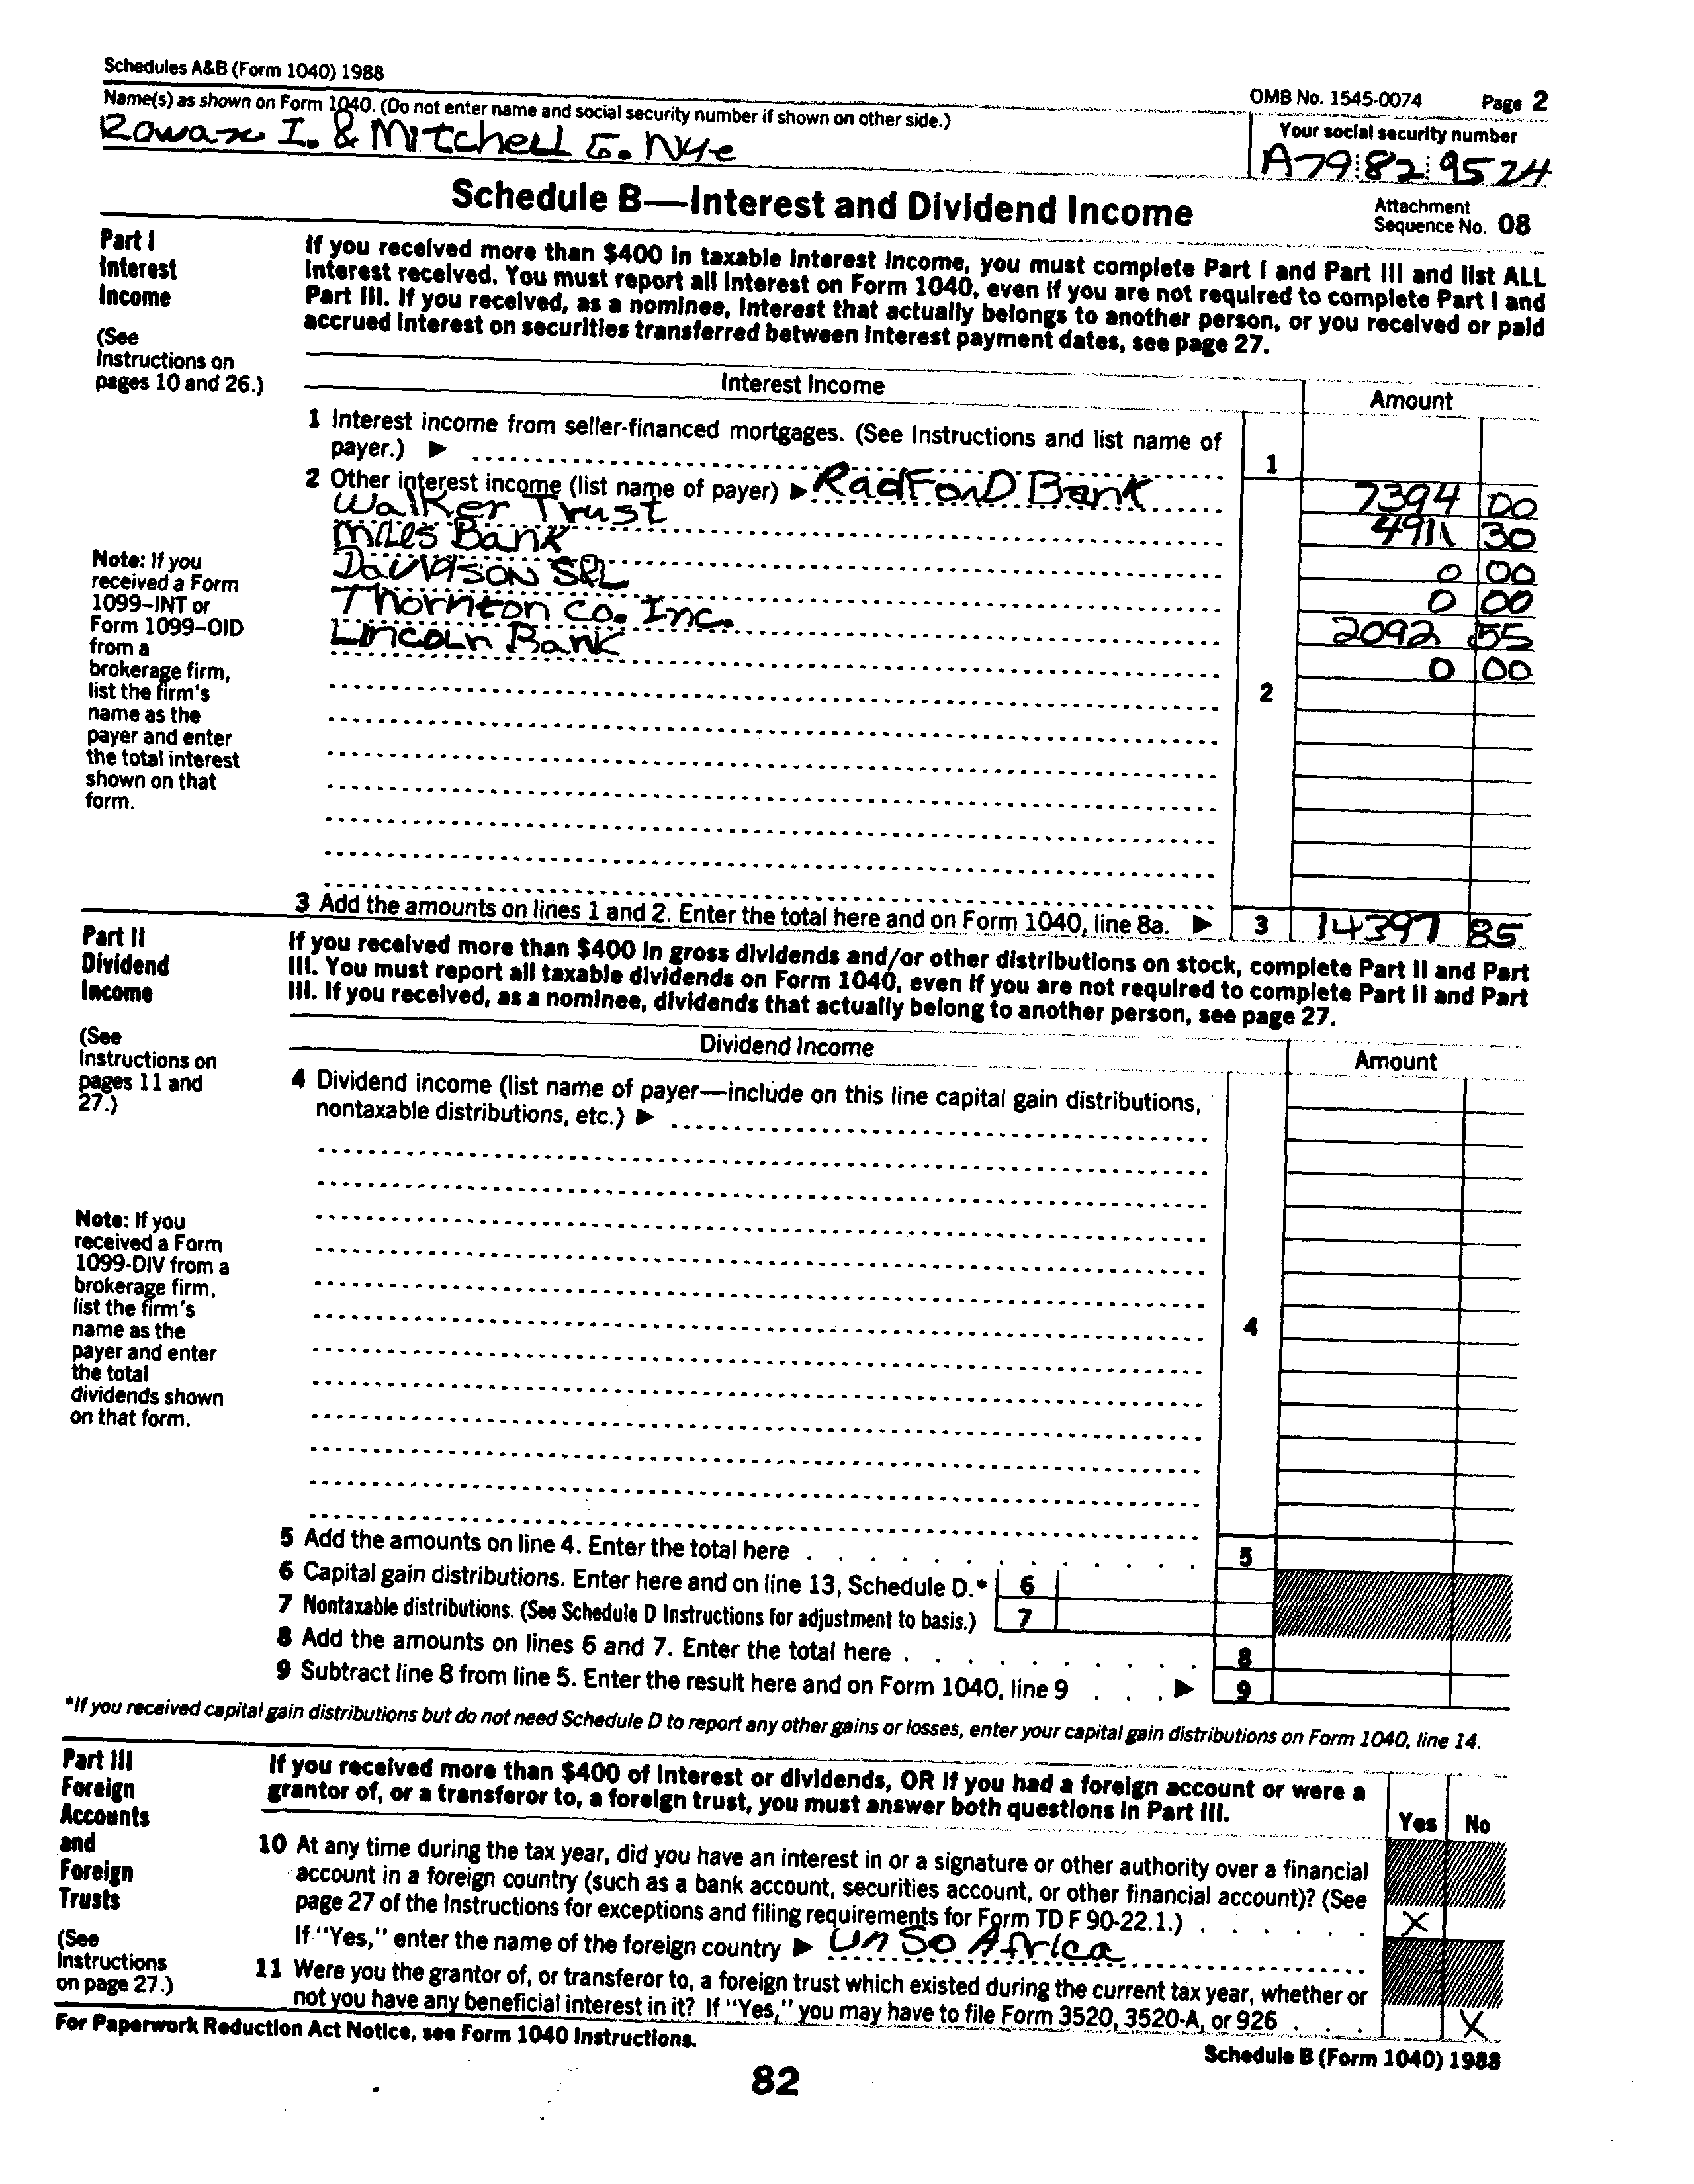 Schedules A&B (Form 1040) 1988
OMB No. 1545-0074 Page 2
Name(s) as shown on Form 1040. (Do not enter name and social security number if shown on other side.)
Your social security number
Rowan I. & Mitchell G. Nye
A79 82 9524
Schedule B—Interest and Dividend Income
Attachment
Sequence No. 08
Part I
Interest
Income
(See
Instructions on
pages 10 and 26.)
If you received more than $400 in taxable interest income, you must complete Part I and Part III and list ALL
interest received. You must report all interest on Form 1040, even if you are not required to complete Part I and
Part III. If you received, as a nominee, interest that actually belongs to another person, or you received or paid
accrued interest on securities transferred between interest payment dates, see page 27.
Interest Income
Amount
1 Interest income from seller-financed mortgages. (See Instructions and list name of
payer.) ▶
1
2 Other interest income (list name of payer) ▶ Radford Bank
7394 00
Walker Trust
4911 30
Miles Bank
0 00
Davidson S&L
0 00
Thornton Co. Inc.
2092 55
Lincoln Bank
0 00
2
Note: If you
received a Form
1099–INT or
Form 1099–OID
from a
brokerage firm,
list the firm's
name as the
payer and enter
the total interest
shown on that
form.
3 Add the amounts on lines 1 and 2. Enter the total here and on Form 1040, line 8a. ▶ 3 14397 85
Part II
Dividend
Income
(See
Instructions on
pages 11 and
27.)
If you received more than $400 in gross dividends and/or other distributions on stock, complete Part II and Part
III. You must report all taxable dividends on Form 1040, even if you are not required to complete Part II and Part
III. If you received, as a nominee, dividends that actually belong to another person, see page 27.
Dividend Income
Amount
4 Dividend income (list name of payer—include on this line capital gain distributions,
nontaxable distributions, etc.) ▶
4
Note: If you
received a Form
1099-DIV from a
brokerage firm,
list the firm's
name as the
payer and enter
the total
dividends shown
on that form.
5 Add the amounts on line 4. Enter the total here . . . . . . . . . . . . 5
6 Capital gain distributions. Enter here and on line 13, Schedule D.* 6
7 Nontaxable distributions. (See Schedule D Instructions for adjustment to basis.) 7
8 Add the amounts on lines 6 and 7. Enter the total here . . . . . . . . . 8
9 Subtract line 8 from line 5. Enter the result here and on Form 1040, line 9 . . . ▶ 9
*If you received capital gain distributions but do not need Schedule D to report any other gains or losses, enter your capital gain distributions on Form 1040, line 14.
Part III
Foreign
Accounts
and
Foreign
Trusts
(See
Instructions
on page 27.)
If you received more than $400 of interest or dividends, OR if you had a foreign account or were a
grantor of, or a transferor to, a foreign trust, you must answer both questions in Part III.
Yes No
10 At any time during the tax year, did you have an interest in or a signature or other authority over a financial
account in a foreign country (such as a bank account, securities account, or other financial account)? (See
page 27 of the Instructions for exceptions and filing requirements for Form TD F 90-22.1.) . . . . . . X
If "Yes," enter the name of the foreign country ▶ Un So Africa
11 Were you the grantor of, or transferor to, a foreign trust which existed during the current tax year, whether or
not you have any beneficial interest in it? If "Yes," you may have to file Form 3520, 3520-A, or 926 . . . X
For Paperwork Reduction Act Notice, see Form 1040 Instructions.
Schedule B (Form 1040) 1988
82